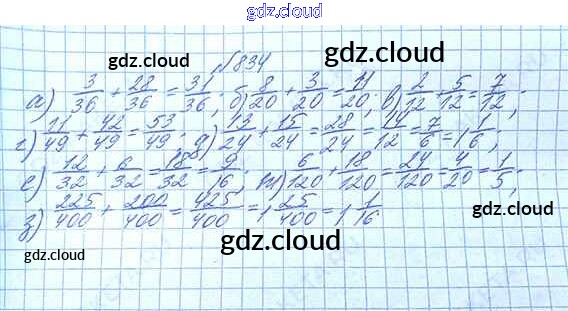 gdz.cloud
№834
gdz.cloud
gdz.cloud
а) 3/36 + 28/36 = 31/36; б) 8/20 + 3/20 = 11/20; в) 2/12 + 5/12 = 7/12;
г) 11/49 + 42/49 = 53/49; д) 13/24 + 15/24 = 28/24 = 14/12 = 7/6 = 1 1/6;
е) 12/32 + 6/32 = 18/32 = 9/16; ж) 6/120 + 18/120 = 24/120 = 4/20 = 1/5;
з) 225/400 + 200/400 = 425/400 = 1 25/400 = 1 1/16
gdz.cloud
gdz.cloud
gdz.cloud